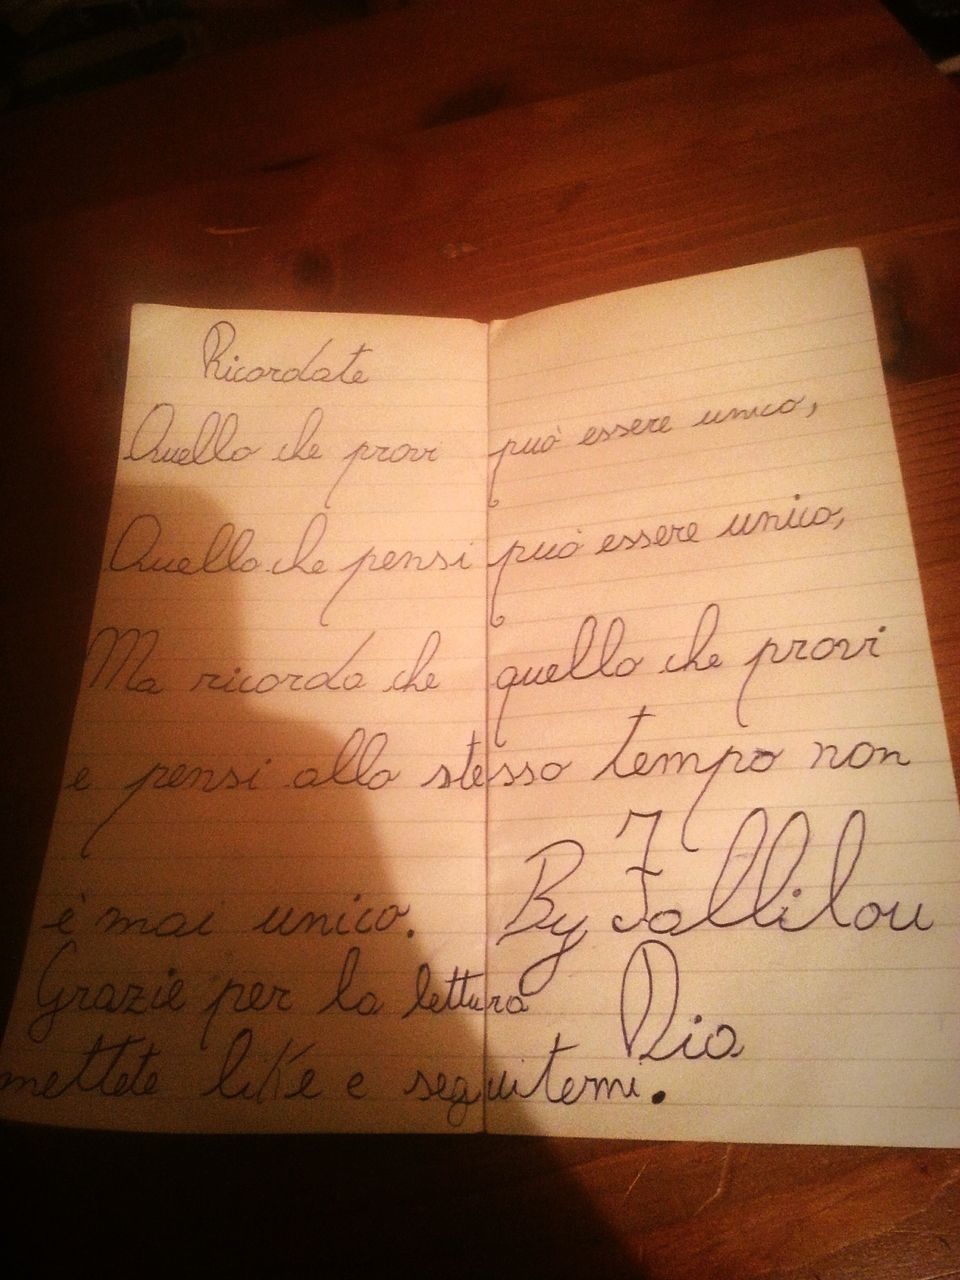 Ricordate
Quello che provi può essere unico,
Quello che pensi può essere unico,
Ma ricorda che quello che provi
e pensi allo stesso tempo non
è mai unico. By Fallilou
Grazie per la lettura Dia
mettete like e seguitemi.